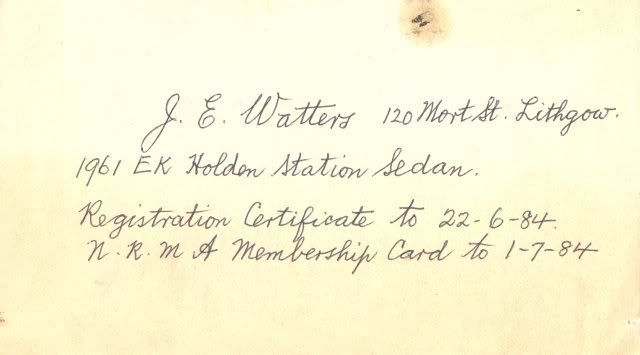 J. E. Watters 120 Mort St. Lithgow.
1961 EK Holden Station Sedan.
Registration Certificate to 22-6-84.
N.R.M A Membership Card to 1-7-84